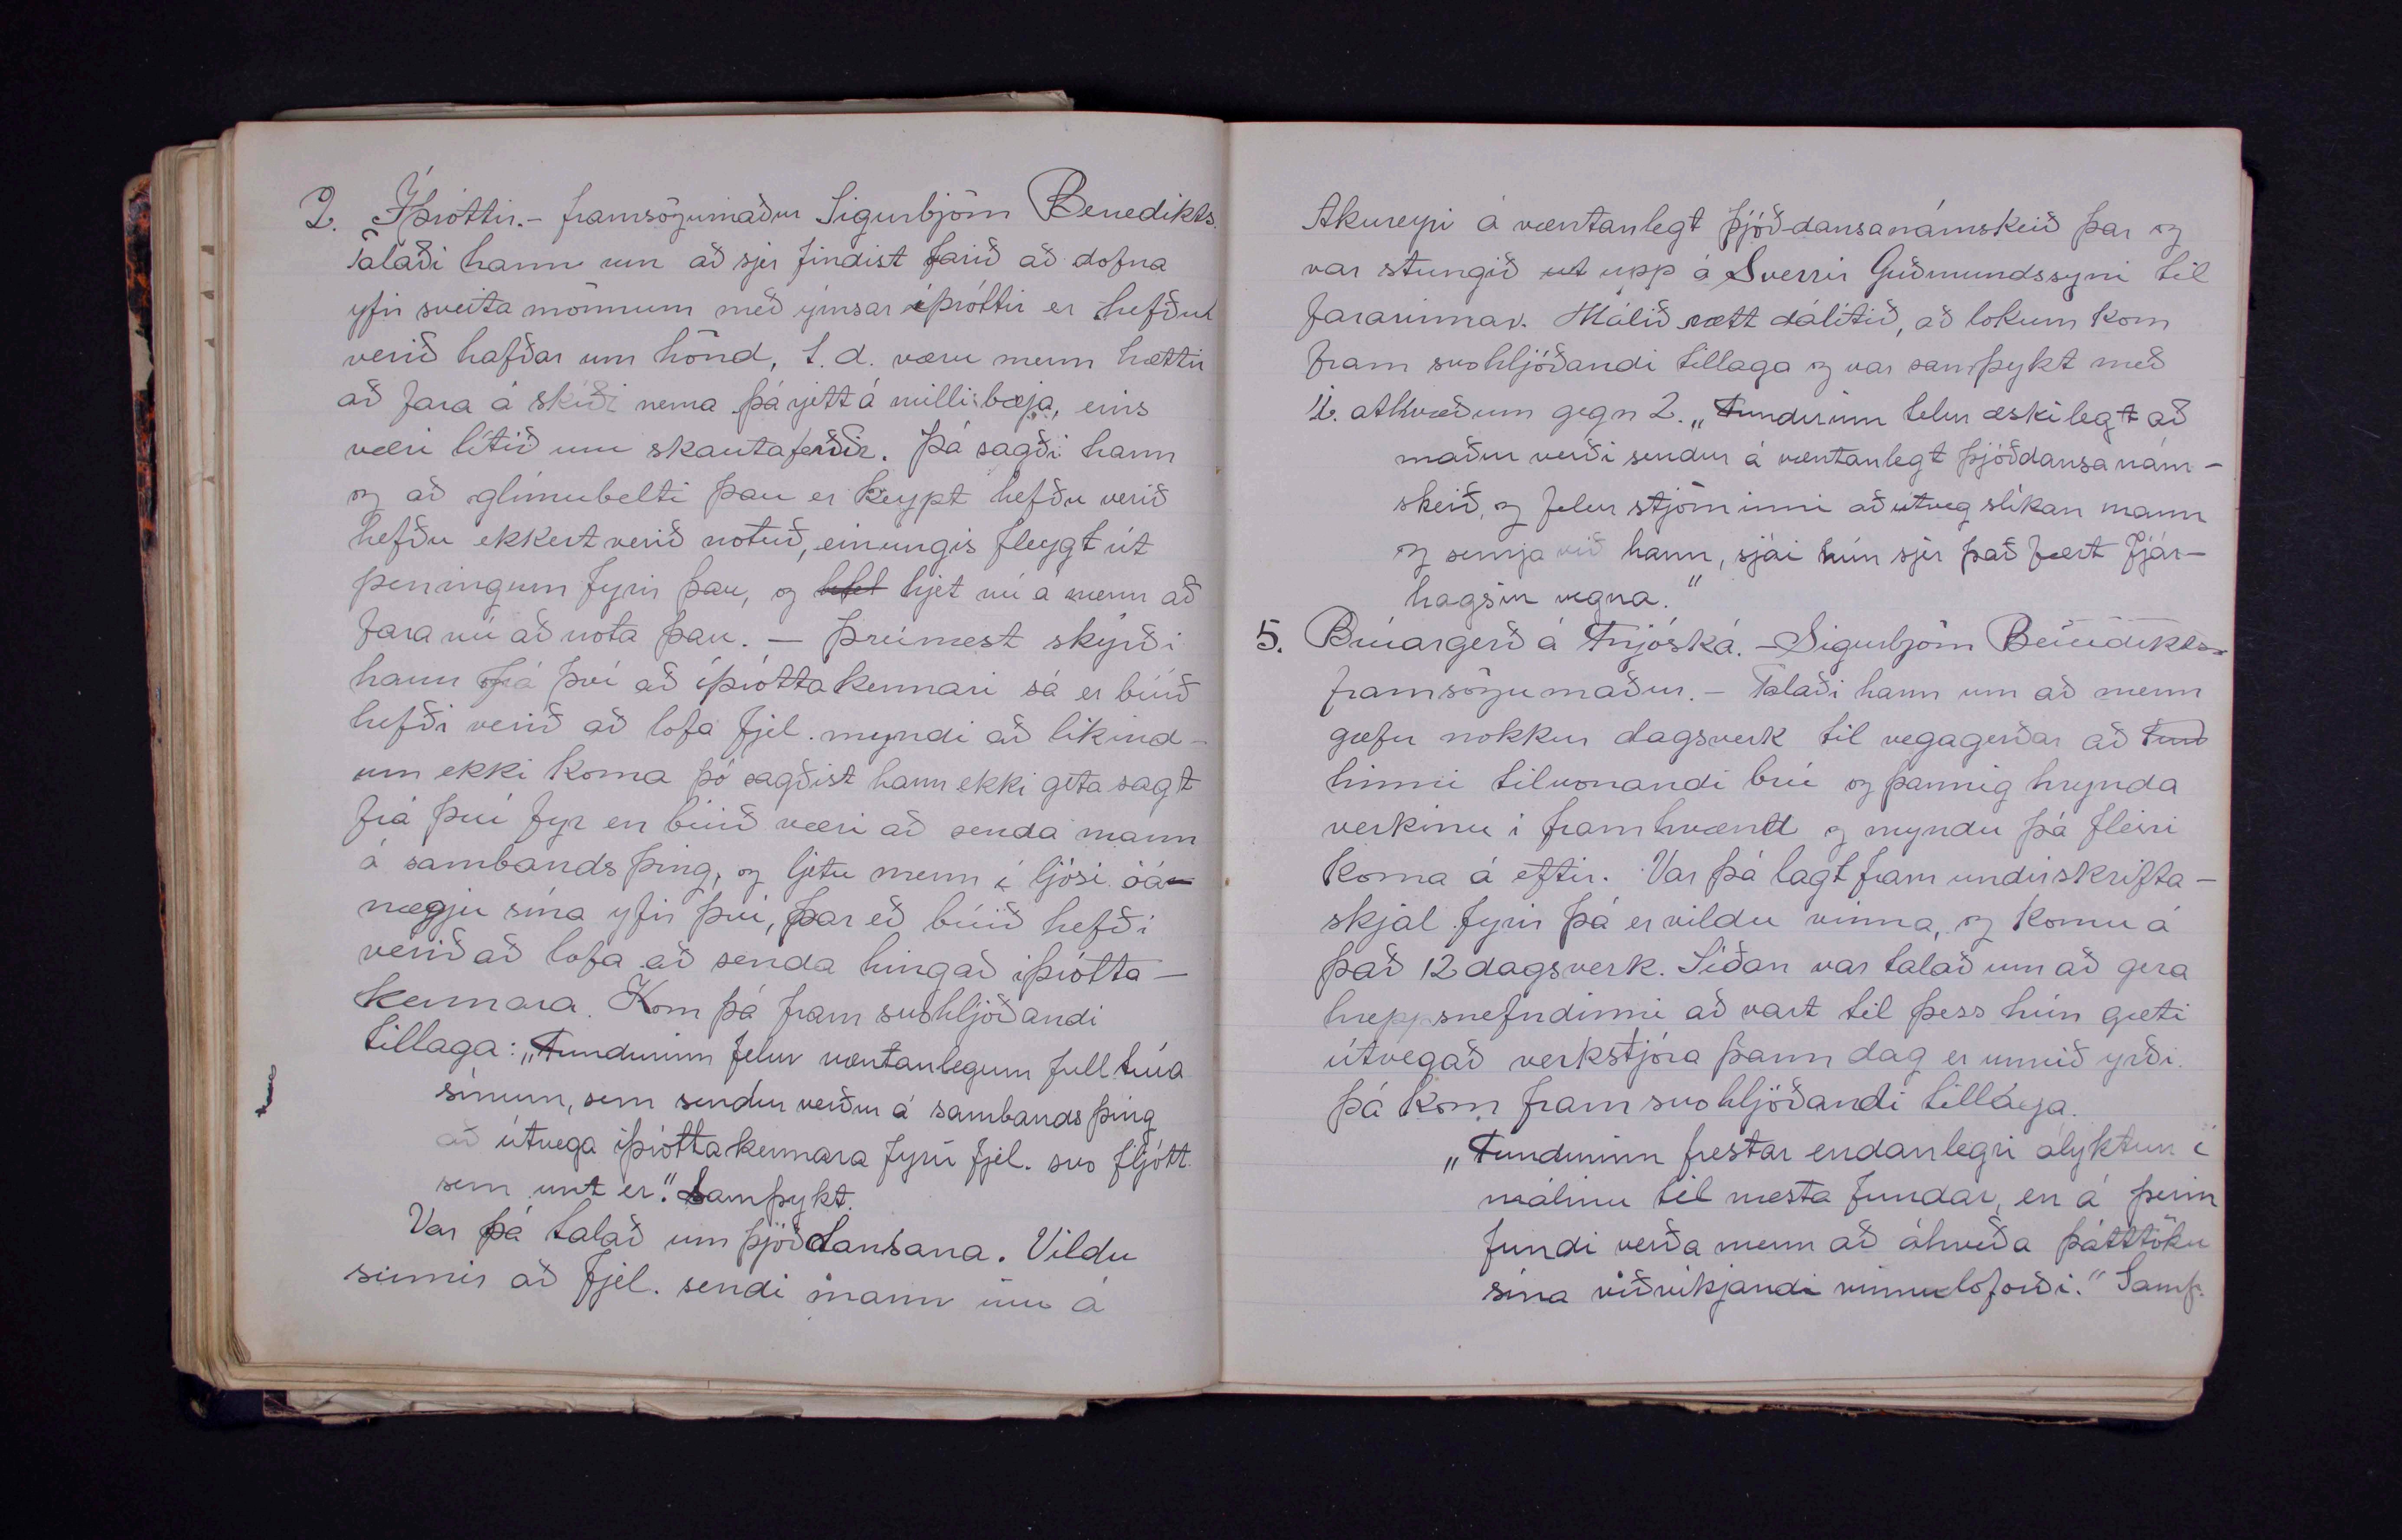 2. Íþróttir. – framsögumaður Sigurbjörn Benedikts.
Talaði hann um að sjer findist farið að dofna
yfir sveita mönnum með ýmsar íþróttir er hefðu
verið hafðar um hönd, t.d. væru menn hættir
að fara á skíði nema þá rjett á milli bæja, eins
væri lítið um skautaferðir. Þá sagði hann
og að glímubelti þau er keypt hefðu verið
hefðu ekkert verið notuð, einungis fleygt út
peningum fyrir þau, og hjet nú á menn að
fara nú að nota þau. – Þvínæst skýrði
hann frá því að íþróttakennari sá er búið
hefði verið að lofa fjel. myndi að líkind-
um ekki koma þó sagðist hann ekki geta sagt
frá því fyr en búið væri að senda mann
á sambandsþing, og ljetu menn í ljósi óá-
nægju sína yfir því, þar eð búið hefði
verið að lofa að senda hingað íþrótta-
kennara. Kom þá fram svohljóðandi
tillaga: „Fundurinn felur væntanlegum fulltrúa
sínum, sem sendur verður á sambandsþing
að útvega íþróttakennara fyrir fjel. svo fljótt
sem unt er." Samþykt.
Var þá talað um þjóðdansana. Vildu
sumir að fjel. sendi mann inn á
Akureyri á væntanlegt þjóðdansanámskeið þar og
var stungið út upp á Sverrir Guðmundssyni til
fararinnar. Málið rætt dálítið, að lokum kom
fram svohljóðandi tillaga og var samþykt með
11. athvæðum gegn 2. „Fundurinn telur æskilegt að
maður verði sendur á væntanlegt þjóðdansanám-
skeið, og felur stjórninni að útveg slíkan mann
og semja við hann, sjái hún sjer það fært fjár-
hagsin vegna."
5. Brúargerð á Fnjóská. – Sigurbjörn Benedikts
framsögumaður. – Talaði hann um að menn
gæfu nokkur dagsverk til vegagerðar að
hinni tilvonandi brú og þannig hrynda
verkinu í framhvænd og myndu þá fleiri
koma á eftir. Var þá lagt fram undirskrifta-
skjal fyrir þá er vildu vinna, og komu á
það 12 dagsverk. Síðan var talað um að gera
hreppsnefndinni að vart til þess hún gæti
útvegað verkstjóra þann dag er unnið yrði.
Þá kom fram svohljóðandi tillaga.
„Fundurinn frestar endanlegri ályktun í
málinu til næsta fundar, en á þeim
fundi verða menn að áhveða þátttöku
sína viðvíkjandi vinnuloforði." Samþ.